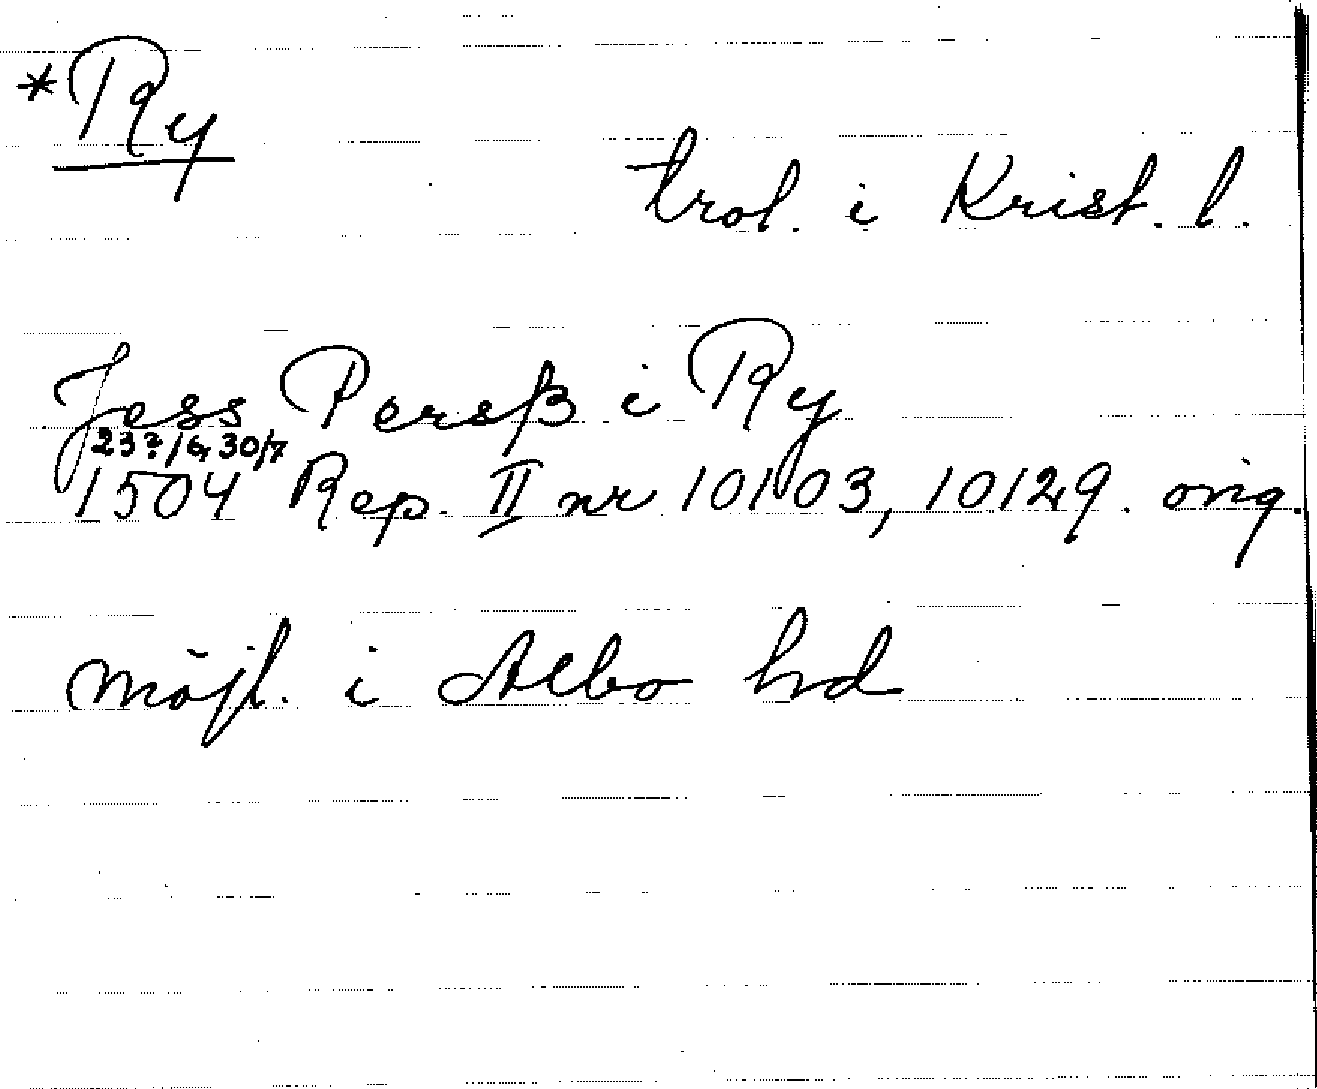 *Ry
trol. i Krist. l.
Jess Persß i Ry
23?/6, 30/7
1504 Rep. II nr 10103, 10129. orig.
möjl. i Albo hd